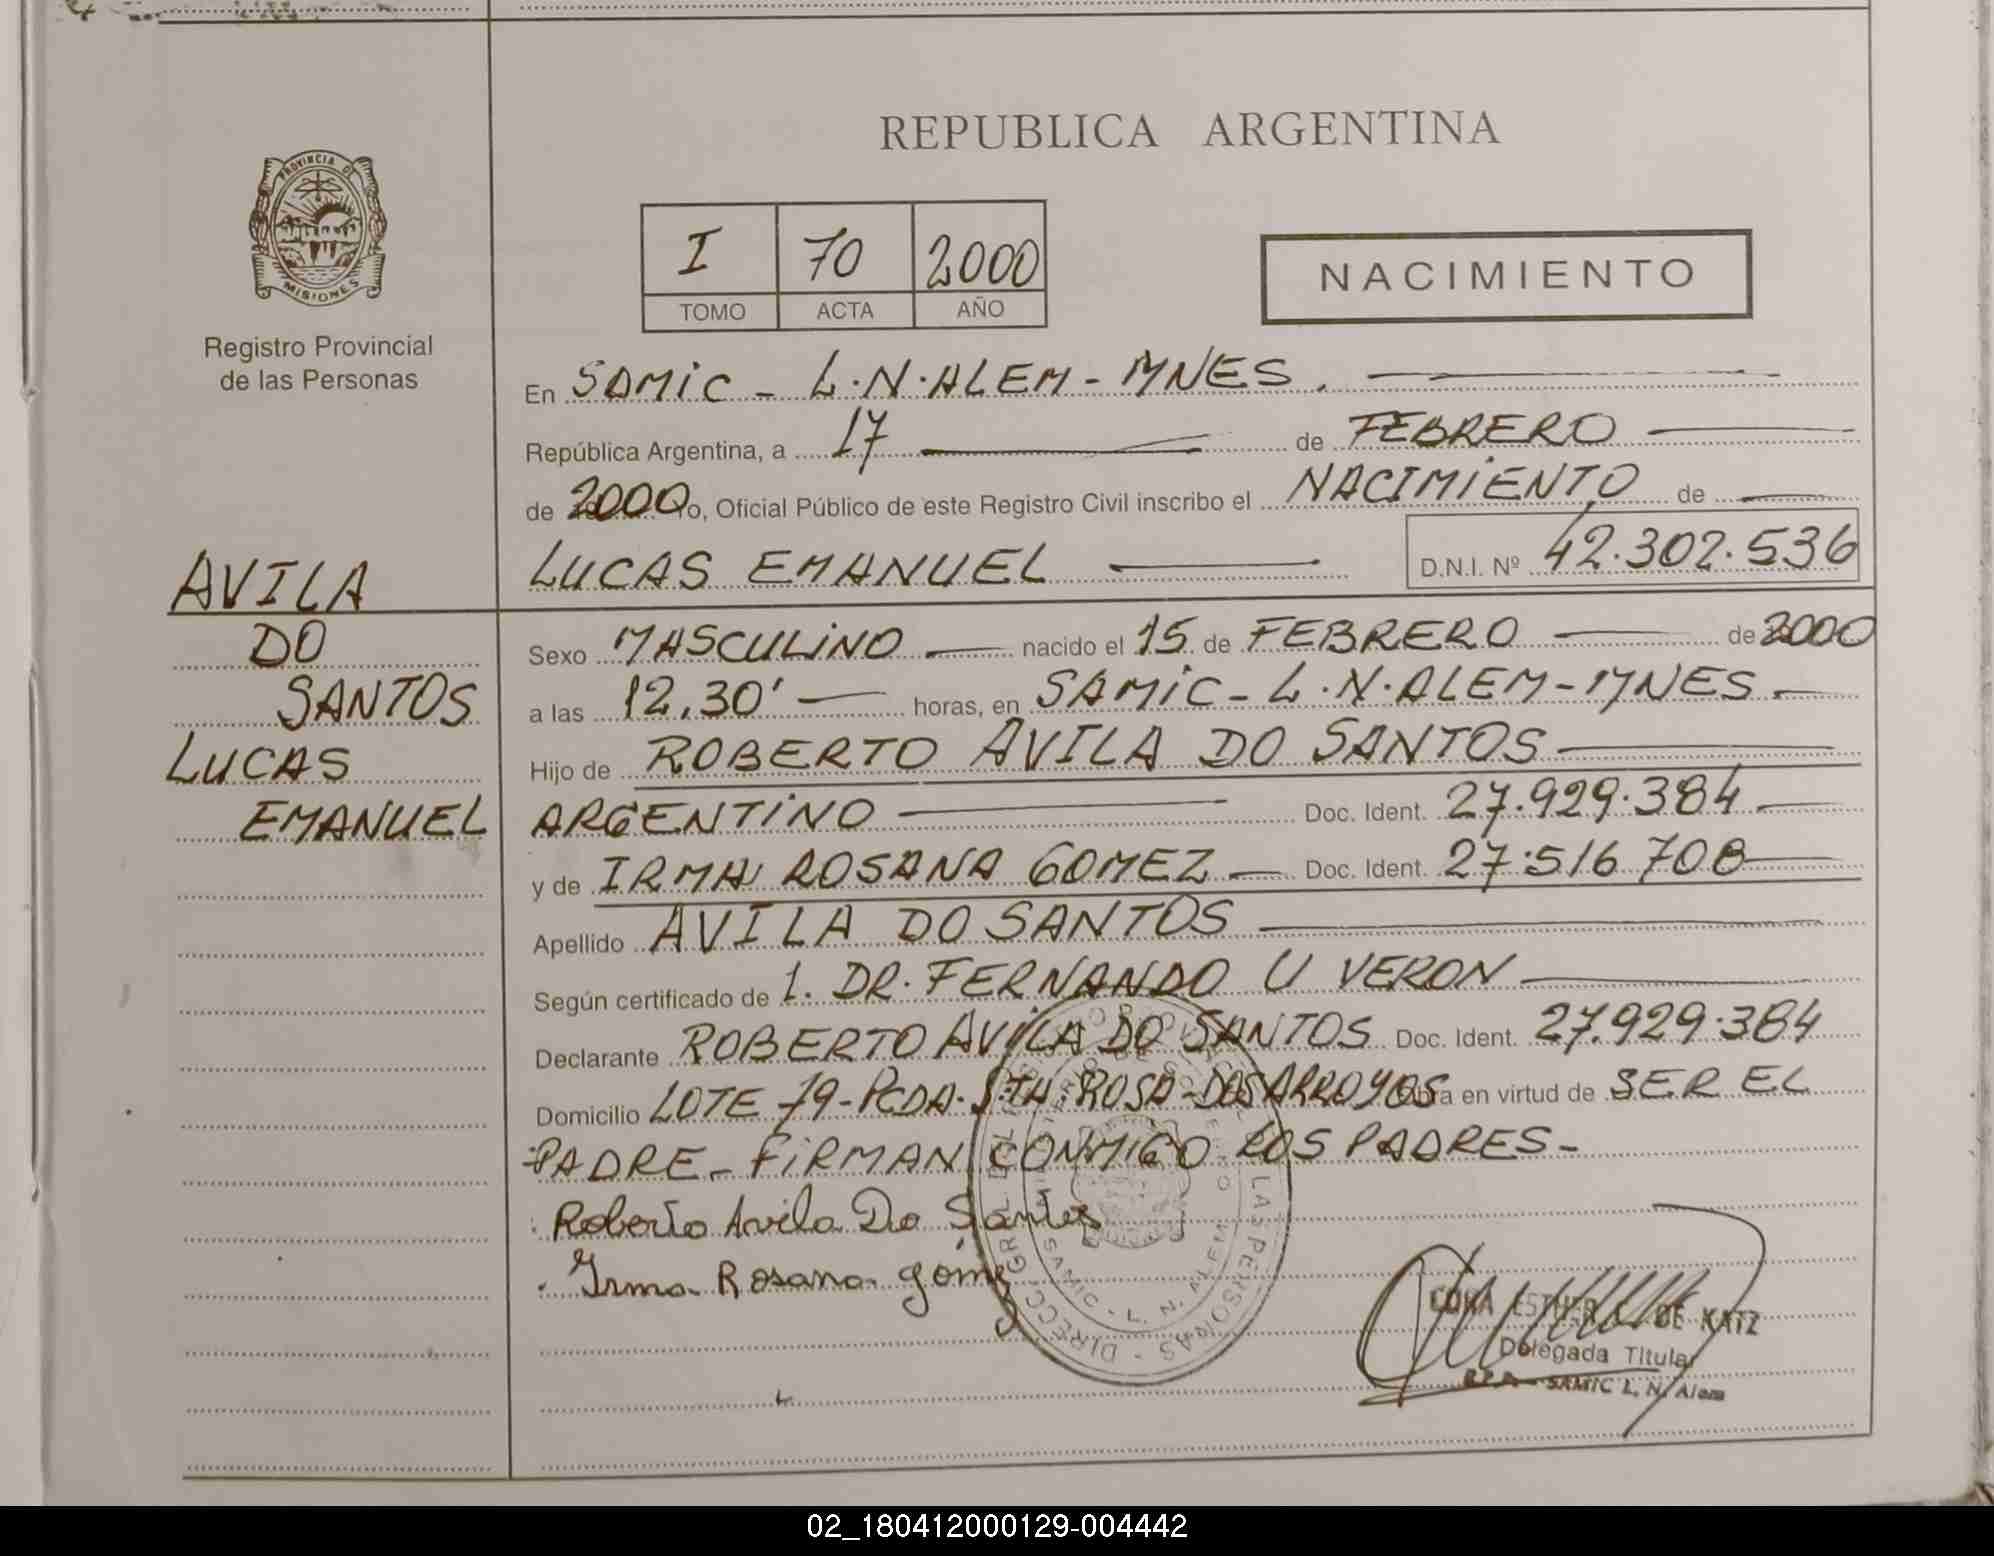 REPUBLICA ARGENTINA
PROVINCIA DE
MISIONES
Registro Provincial
de las Personas
I 70 2000
TOMO ACTA AÑO
NACIMIENTO
En SAMIC - L.N.ALEM - MNES.
República Argentina, a 17 de FEBRERO
de 2000 Yo, Oficial Público de este Registro Civil inscribo el NACIMIENTO de
LUCAS EMANUEL D.N.I. Nº 42.302.536
AVILA
DO
SANTOS
LUCAS
EMANUEL
Sexo MASCULINO nacido el 15 de FEBRERO de 2000
a las 12,30' horas, en SAMIC - L.N.ALEM - MNES.
Hijo de ROBERTO AVILA DO SANTOS
ARGENTINO Doc. Ident. 27.929.384
y de IRMA ROSANA GOMEZ Doc. Ident. 27.516.708
Apellido AVILA DO SANTOS
Según certificado de 1. DR. FERNANDO U VERON
Declarante ROBERTO AVILA DO SANTOS Doc. Ident. 27.929.384
Domicilio LOTE 79 - PCDA. STA ROSA - DOS ARROYOS Obra en virtud de SER EL
PADRE - FIRMAN CONMIGO LOS PADRES -
Roberto Avila Do Santos
Irma Rosana gómez
DIRECC. GRAL. DEL LAS PERSONAS
SAMIC - L. N. ALEM
ESTHER C. DE KATZ
Delegada Titular
SAMIC L. N. Alem
02_180412000129-004442